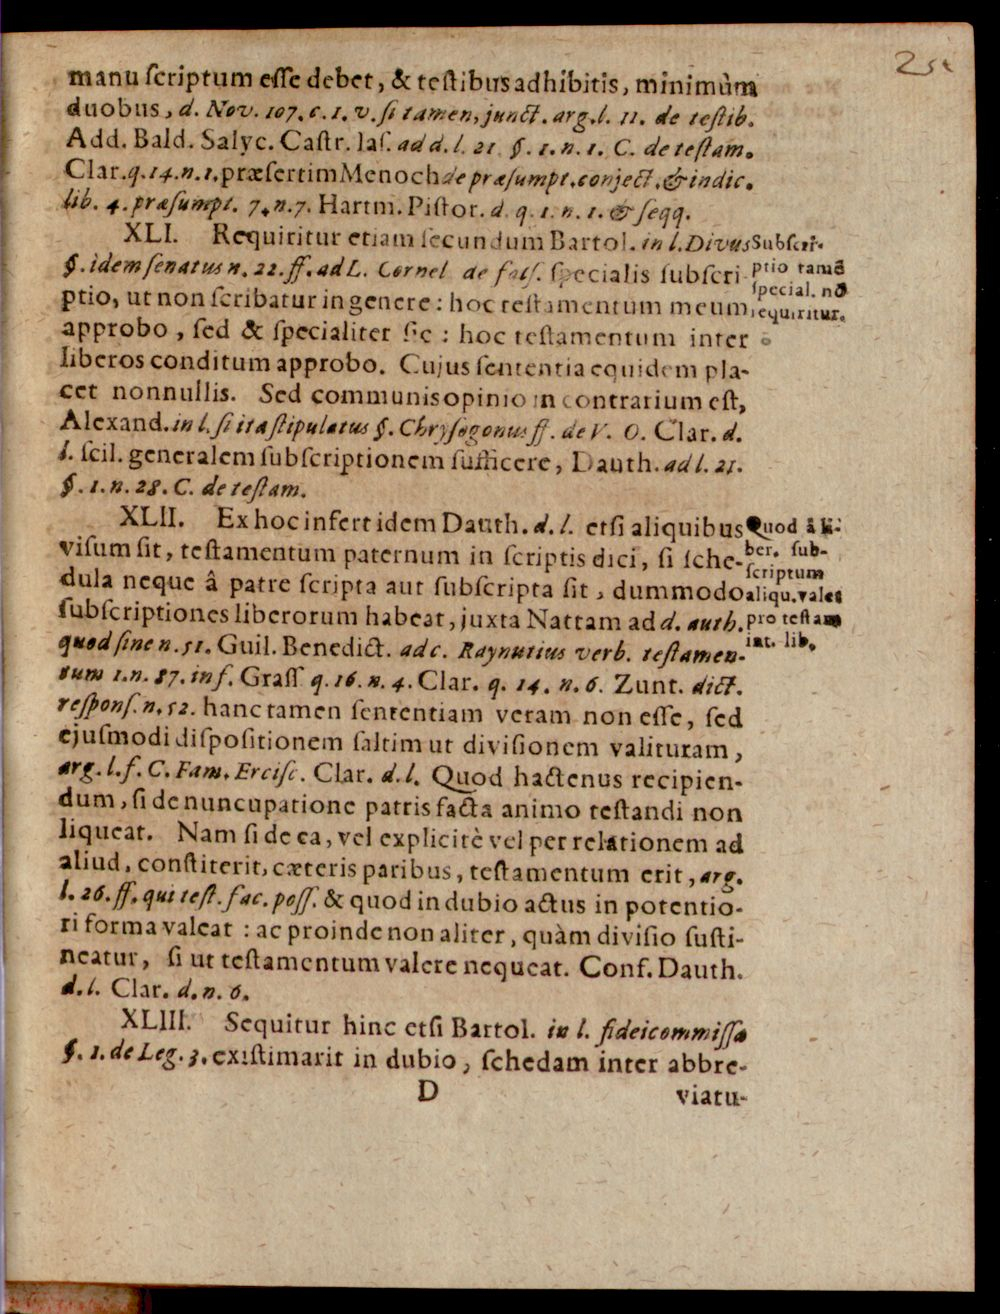 251
manu ſcriptum eſſe debet, & teſtibus adhibitis, minimùm
duobus, d. Nov. 107. c. 1. v. ſi tamen, junct. arg. l. 11. de teſtib.
Add. Bald. Salyc. Caſtr. Iaſ. ad d. l. 21 §. 1. n. 1. C. de teſtam.
Clar. q. 14. n. 1. præſertim Menoch de præſumpt. conject. & indic.
lib. 4. præſumpt. 7. n. 7. Hartm. Piſtor. d. q. 1. n. 1. & ſeqq.
XLI. Requiritur etiam ſecundum Bartol. in l. Divus
§. idem ſenatus n. 22. ff. ad L. Cornel de falſ. ſpecialis ſubſcri-
ptio, ut non ſcribatur in genere: hoc teſtamentum meum
approbo, ſed & ſpecialiter ſic: hoc teſtamentum inter
liberos conditum approbo. Cujus ſententia equidem pla-
cet nonnullis. Sed communis opinio in contrarium eſt,
Alexand. in l. ſi ita ſtipulatus §. Chryſogonus ff. de V. O. Clar. d.
l. ſcil. generalem ſubſcriptionem ſufficere, Dauth. ad l. 21.
§. 1. n. 28. C. de teſtam.
Subſcri-
ptio tamẽ
ſpecial. nõ
requiritur.
XLII. Ex hoc infert idem Dauth. d. l. etſi aliquibus
viſum ſit, teſtamentum paternum in ſcriptis dici, ſi ſche-
dula neque â patre ſcripta aut ſubſcripta ſit, dummodo
ſubſcriptiones liberorum habeat, juxta Nattam ad d. auth.
quod ſine n. 51. Guil. Benedict. ad c. Raynutius verb. teſtamen-
tum 1. n. 87. inf. Graſſ q. 16. n. 4. Clar. q. 14. n. 6. Zunt. dict.
reſponſ. n. 52. hanc tamen ſententiam veram non eſſe, ſed
ejuſmodi diſpoſitionem ſaltim ut diviſionem valituram,
arg. l. f. C. Fam. Erciſc. Clar. d. l. Quod hactenus recipien-
dum, ſi de nuncupatione patris facta animo teſtandi non
liqueat. Nam ſi de ea, vel explicitè vel per relationem ad
aliud, conſtiterit, cæteris paribus, teſtamentum erit, arg.
l. 26. ff. qui teſt. fac. poſſ. & quod in dubio actus in potentio-
ri forma valeat: ac proinde non aliter, quàm diviſio ſuſti-
neatur, ſi ut teſtamentum valere nequeat. Conf. Dauth.
d. l. Clar. d. n. 6.
Quod â li-
ber. ſub-
ſcriptum
aliqu. valet
pro teſtam
int. lib.
XLIII. Sequitur hinc etſi Bartol. in l. fideicommiſſa
§. 1. de Leg. 3. exiſtimarit in dubio, ſchedam inter abbre-
D viatu-